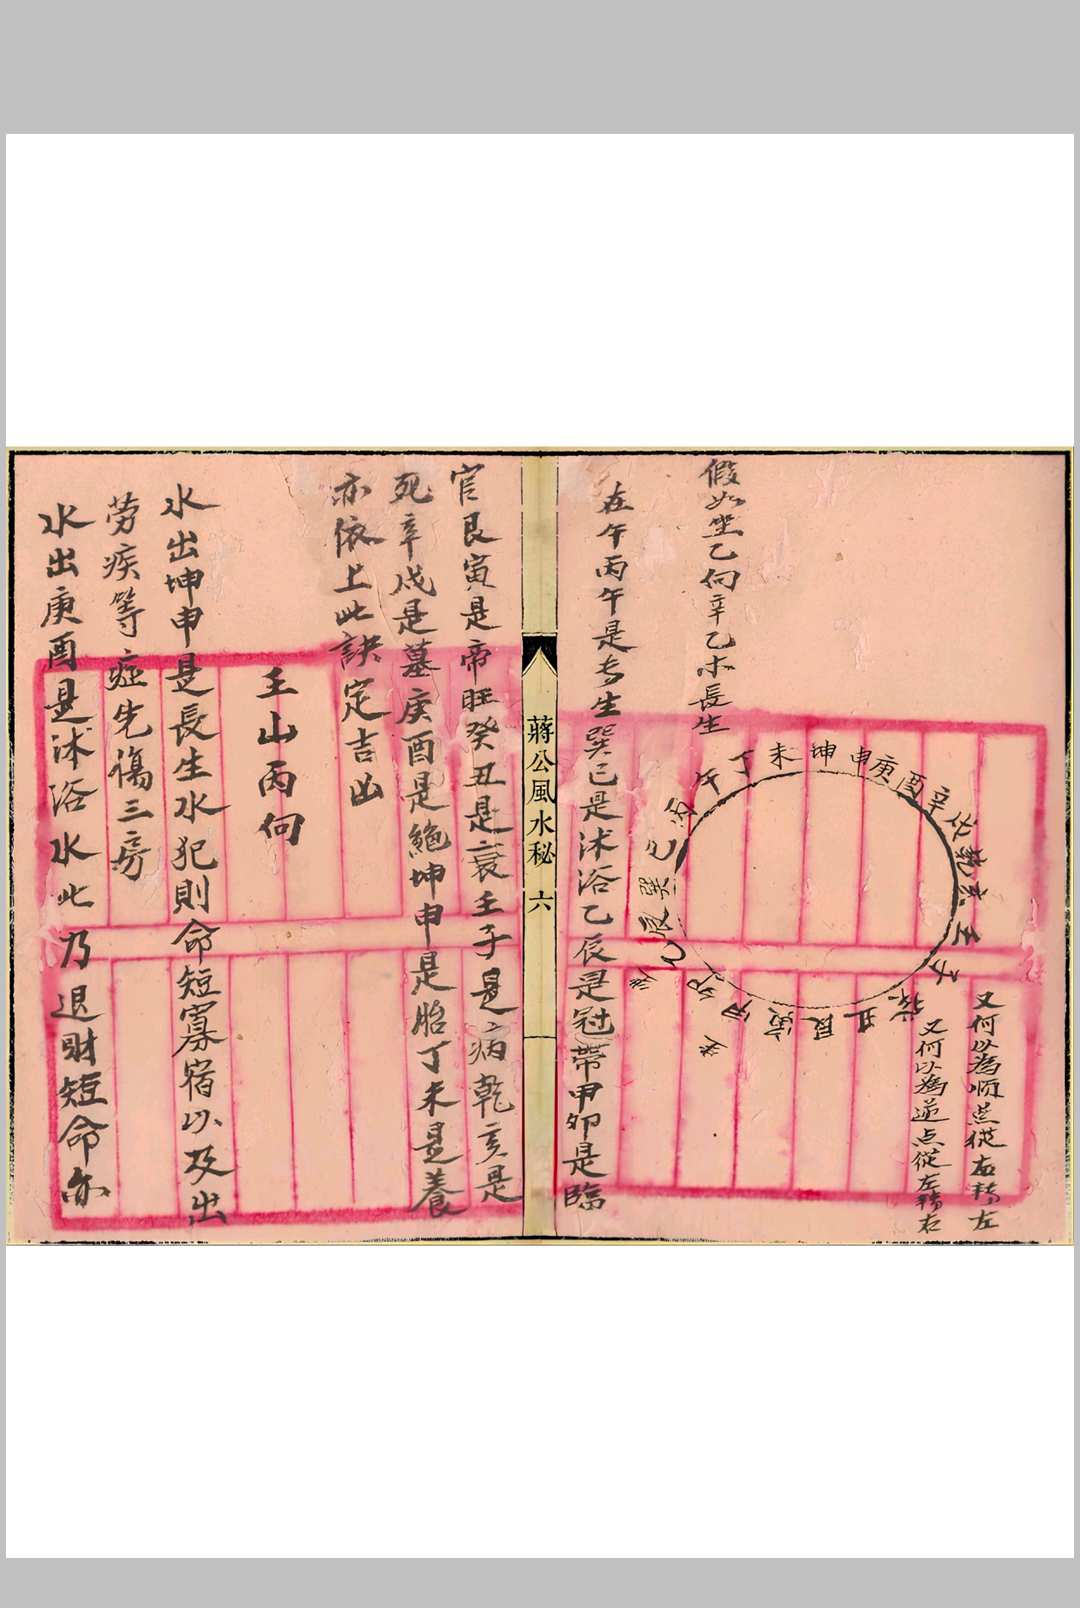 又何以為順盤從右轉左
又何以為逆点從左轉右
壬子癸丑艮寅甲卯乙辰巽巳丙午丁未坤申庚酉辛戌乾亥
假如坐乙向辛乙木長生
在午丙午是長生巽巳是沐浴乙辰是冠帶甲卯是臨
蔣公風水秘 六
官艮寅是帝旺癸丑是衰壬子是病乾亥是
死辛戌是墓庚酉是絕坤申是胎丁未是養
亦依上此訣定吉凶
壬山丙向
水出坤申是長生水犯則命短寡宿以及出
勞疾等症先傷三房
水出庚酉是沐浴水此乃退財短命亦